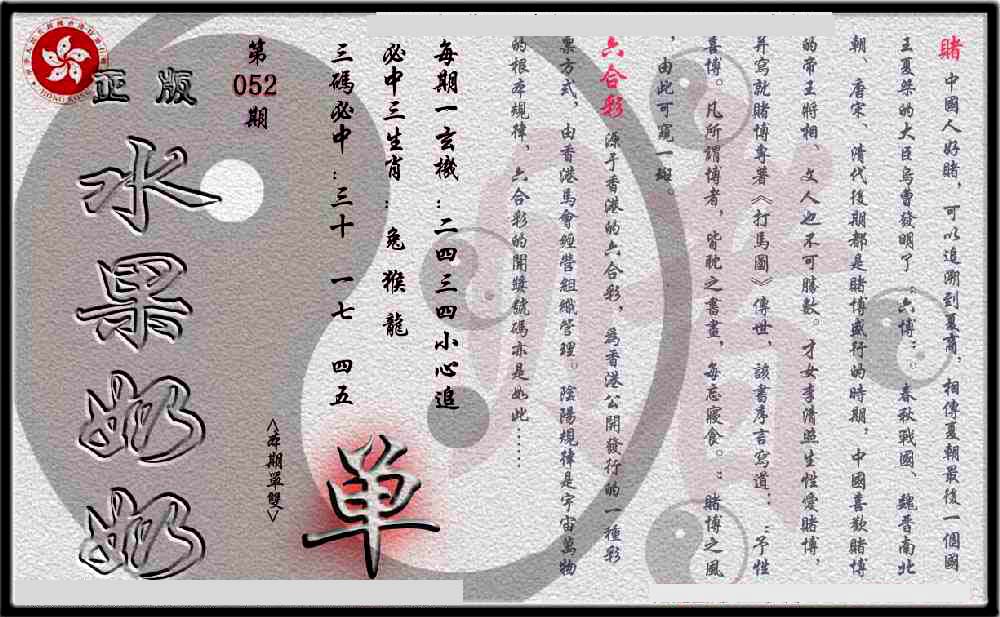 賭 中國人好賭，可以追溯到夏商，相傳夏朝最後一個國
王夏桀的大臣烏曹發明了“六博”，春秋戰國、魏晉南北
朝、唐宋、清代後期都是賭博盛行的時期，中國喜歡賭博
的帝王將相、文人也不可勝數。才女李清照生性愛賭博，
并寫就賭博專著《打馬圖》傳世，該書序言寫道：“予性
喜博。凡所謂博者，皆耽之晝晝，每忘寢食。”賭博之風
，由此可窺一斑。
六合彩 源于香港的六合彩，爲香港公開發行的一種彩
票方式，由香港馬會經營組織管理。陰陽規律是宇宙萬物
的根本規律，六合彩的開獎號碼亦是如此……
每期一玄機：二四三四小心追
必中三生肖：兔 猴 龍
三碼必中：三十 一七 四五
第052期
<本期單雙>
单
正版
水果奶奶